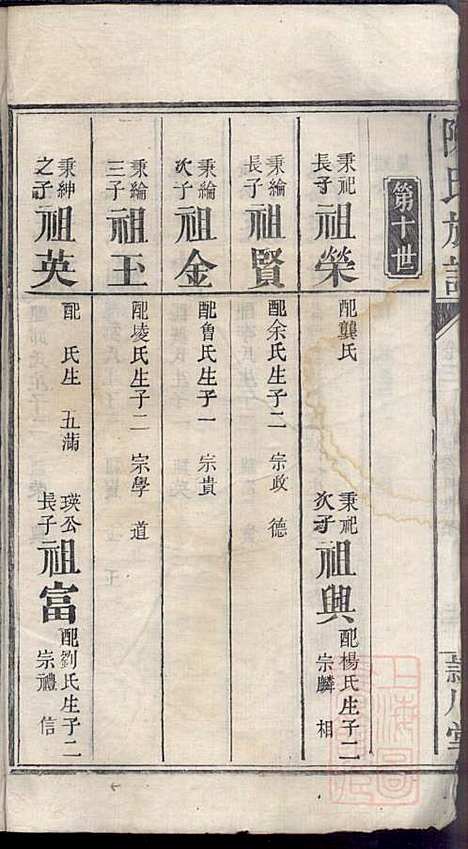 陳氏族譜
穎川堂
第十世
秉祀長子 祖榮 配龔氏
秉祀次子 祖興 配楊氏生子二 宗麟 相
秉綸長子 祖賢 配余氏生子二 宗政 德
秉綸次子 祖金 配魯氏生子一 宗貴
秉綸三子 祖玉 配凌氏生子二 宗學 道
秉紳之子 祖英 配 氏生 五滿
瑛公長子 祖富 配劉氏生子二 宗禮 信